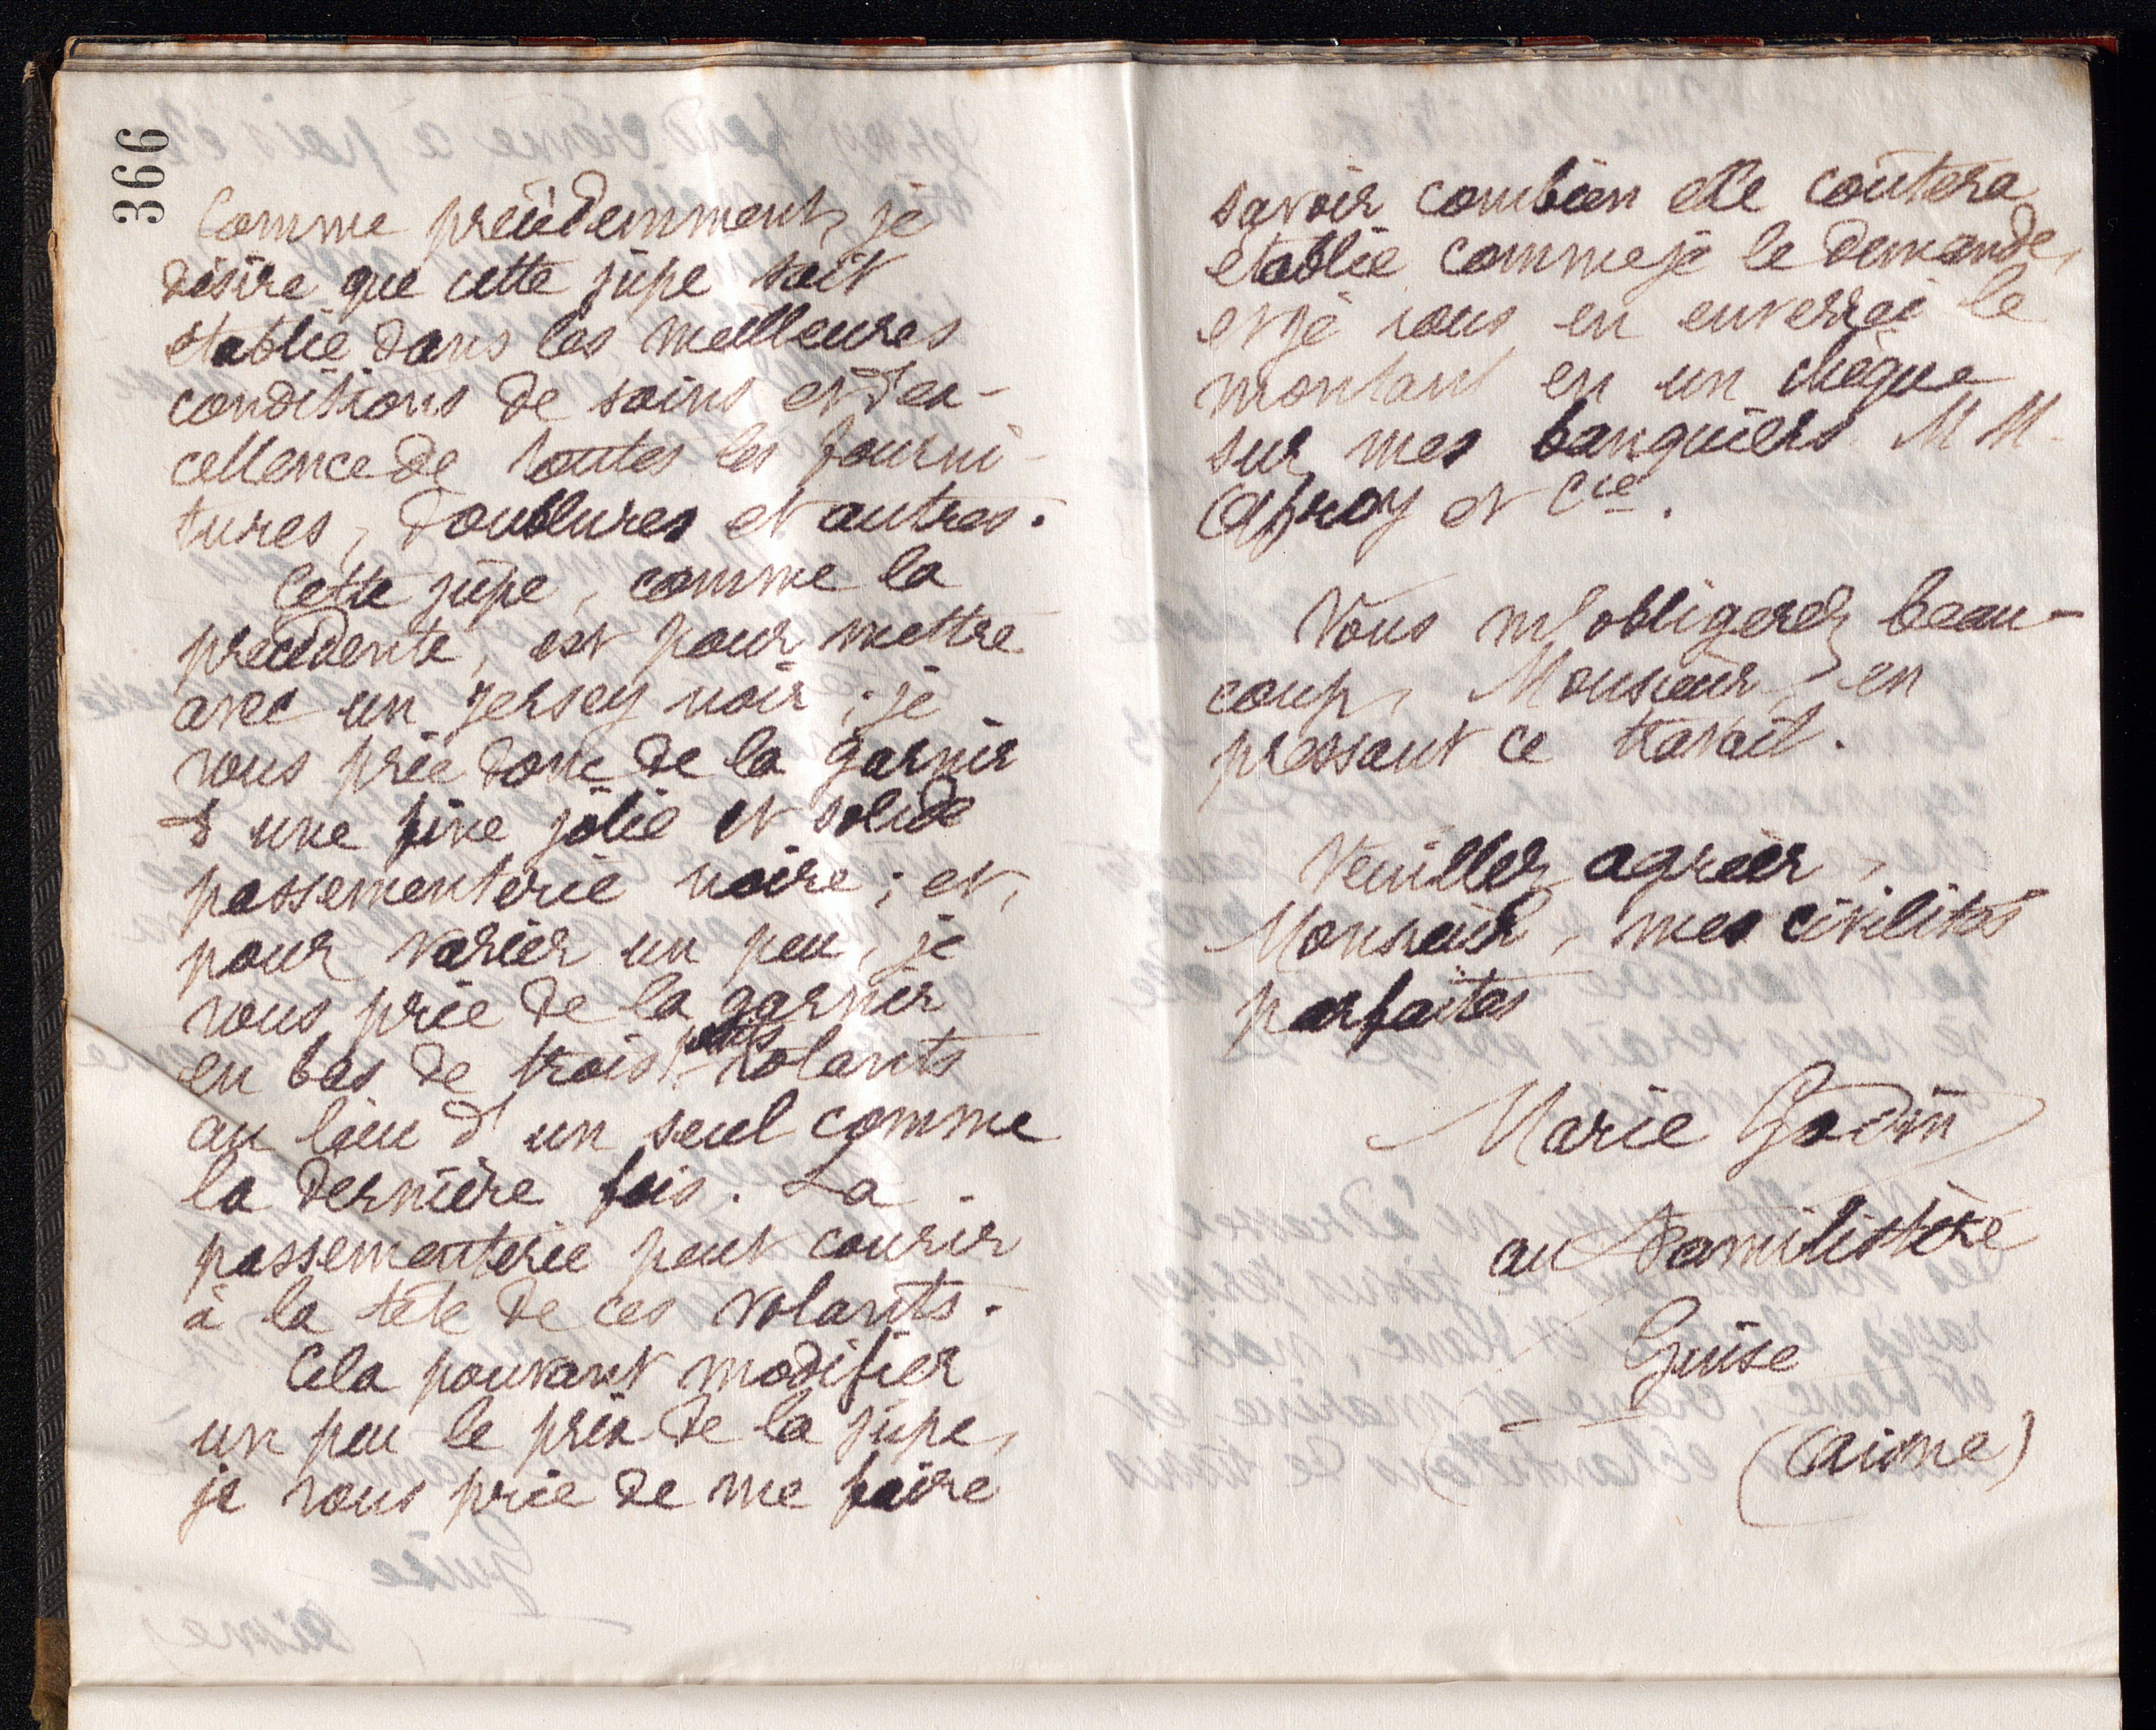 366
Comme précédemment, je
désire que cette jupe soit
établie dans les meilleures
conditions de soins et d'ex-
cellence de toutes les fourni-
tures, doublures et autres.
Cette jupe, comme la
précédente, est pour mettre
avec un jersey noir ; je
vous prie donc de la garnir
d'une fine jolie et solide
passementerie noire ; et,
pour varier un peu, je
vous prie de la garnir
en bas de trois petits volants
au lieu d'un seul comme
la dernière fois. La
passementerie peut courir
à la tête de ces volants.
Cela pouvant modifier
un peu le prix de la jupe,
je vous prie de me faire
savoir combien elle coûtera
établie comme je le demande,
et je vous en enverrai le
montant en un chèque
sur mes banquiers M M.
et Cie.
Vous m'obligerez beau-
coup, Monsieur, en
pressant ce travail.
Veuillez agréer,
Monsieur, mes civilités
parfaites
Marie Godin
au Familistère
Guise
(Aisne)